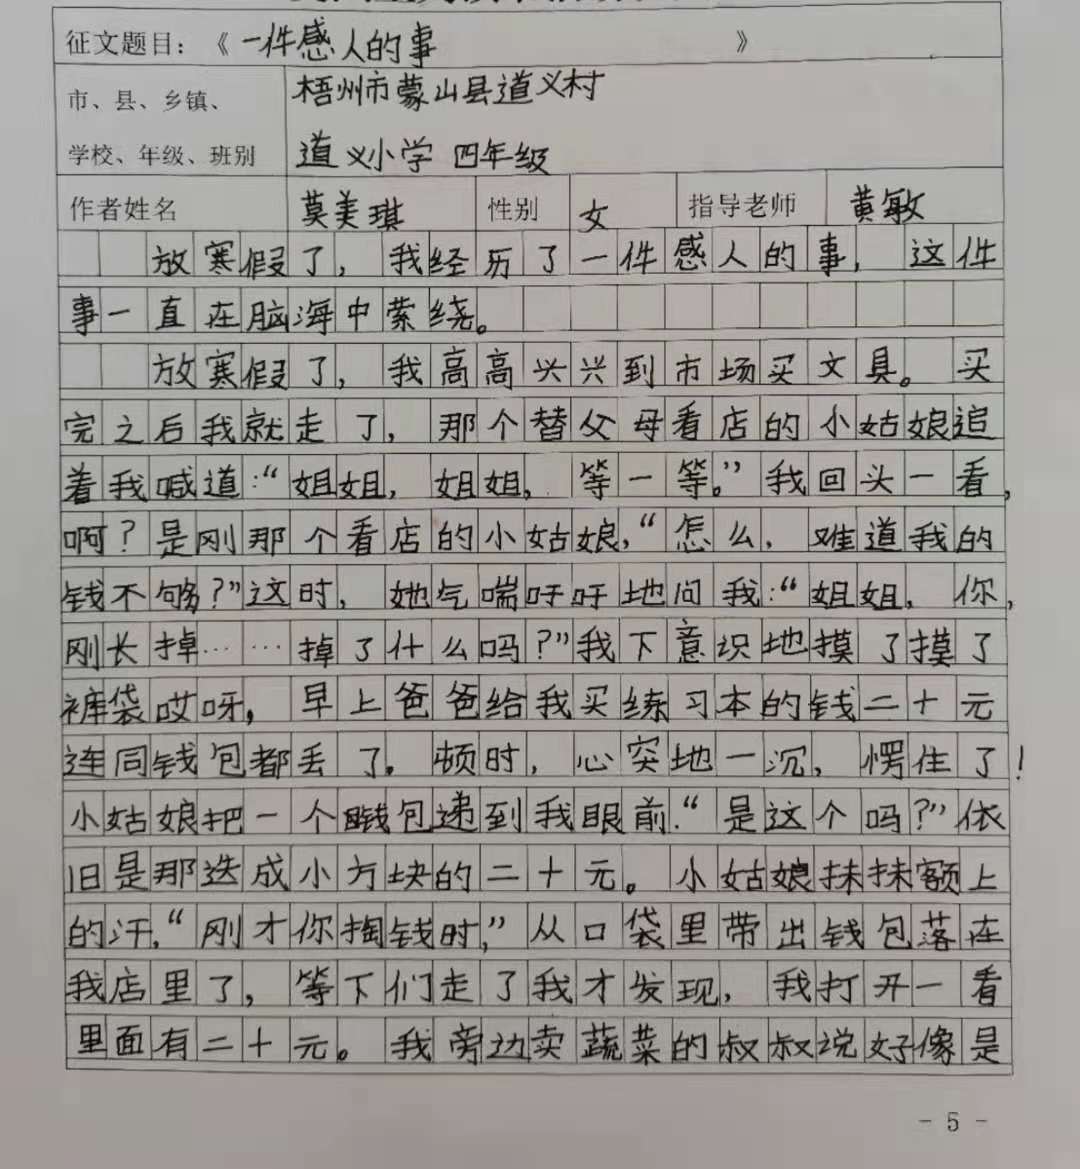 征文题目：《一件感人的事》
市、县、乡镇、
学校、年级、班别
梧州市蒙山县道义村
道义小学 四年级
作者姓名 莫美琪 性别 女 指导老师 黄敏
放寒假了，我经历了一件感人的事，这件
事一直在脑海中萦绕。
放寒假了，我高高兴兴到市场买文具。买
完之后我就走了，那个替父母看店的小姑娘追
着我喊道:“姐姐，姐姐，等一等。”我回头一看，
啊？是刚那个看店的小姑娘，“怎么，难道我的
钱不够？”这时，她气喘吁吁地问我:“姐姐，你，
刚长掉……掉了什么吗？”我下意识地摸了摸了
裤袋哎呀，早上爸爸给我买练习本的钱二十元
连同钱包都丢了。顿时，心突地一沉，愣住了！
小姑娘把一个钱包递到我眼前.“是这个吗？”依
旧是那迭成小方块的二十元。小姑娘抹抹额上
的汗，“刚才你掏钱时，”从口袋里带出钱包落在
我店里了，等下们走了我才发现，我打开一看
里面有二十元。我旁边卖蔬菜的叔叔说好像是
- 5 -